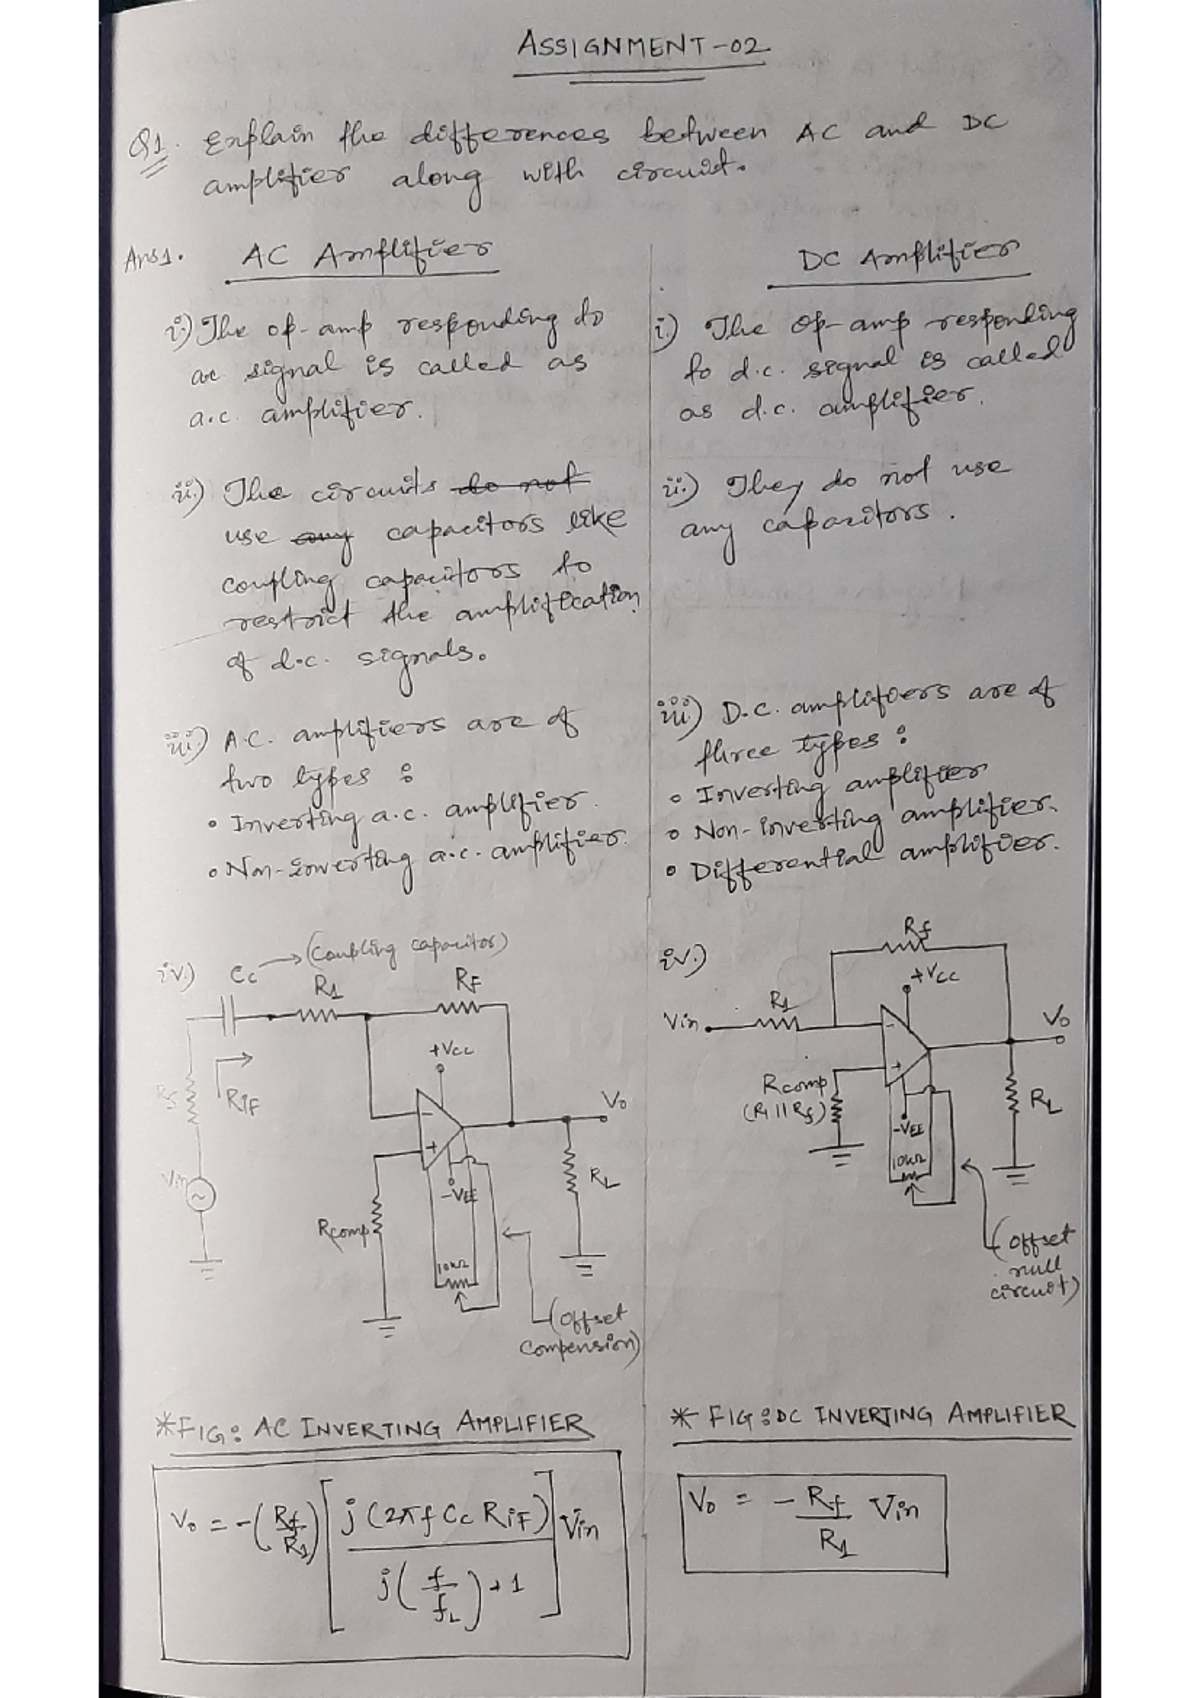 ASSIGNMENT-02
Q1. Explain the differences between AC and DC
amplifier along with circuit.
Ans1. AC Amplifier
i) The op-amp responding to
ac signal is called as
a.c. amplifier.
ii) The circuits do not
use any capacitors like
coupling capacitors to
restrict the amplification
of d.c. signals.
iii) A.C. amplifiers are of
two types :
• Inverting a.c. amplifier.
• Non-inverting a.c. amplifier.
iv.) Cc → (Coupling capacitor)
R1 RF
+Vcc
Rs
RiF
Vo
Vin
-VEE
RL
Rcomp
10kΩ
(Offset
Compension)
*FIG: AC INVERTING AMPLIFIER
Vo = -(Rf/R1) [j(2πf Cc RiF) / j(f/fL)+1] Vin
DC Amplifier
i.) The op-amp responding
to d.c. signal is called
as d.c. amplifier.
ii.) They do not use
any capacitors.
iii) D.C. amplifiers are of
three types :
• Inverting amplifier
• Non-inverting amplifier.
• Differential amplifier.
iv.)
Rf
+Vcc
Vin R1
Vo
Rcomp
(R1 || Rf)
-VEE
RL
10kΩ
(Offset
null
circuit)
* FIG: DC INVERTING AMPLIFIER
Vo = - Rf/R1 Vin